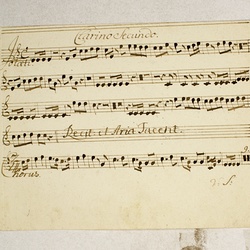 Clarino Secundo.
Recit. et Aria Tacent.
Chorus.
v. s.